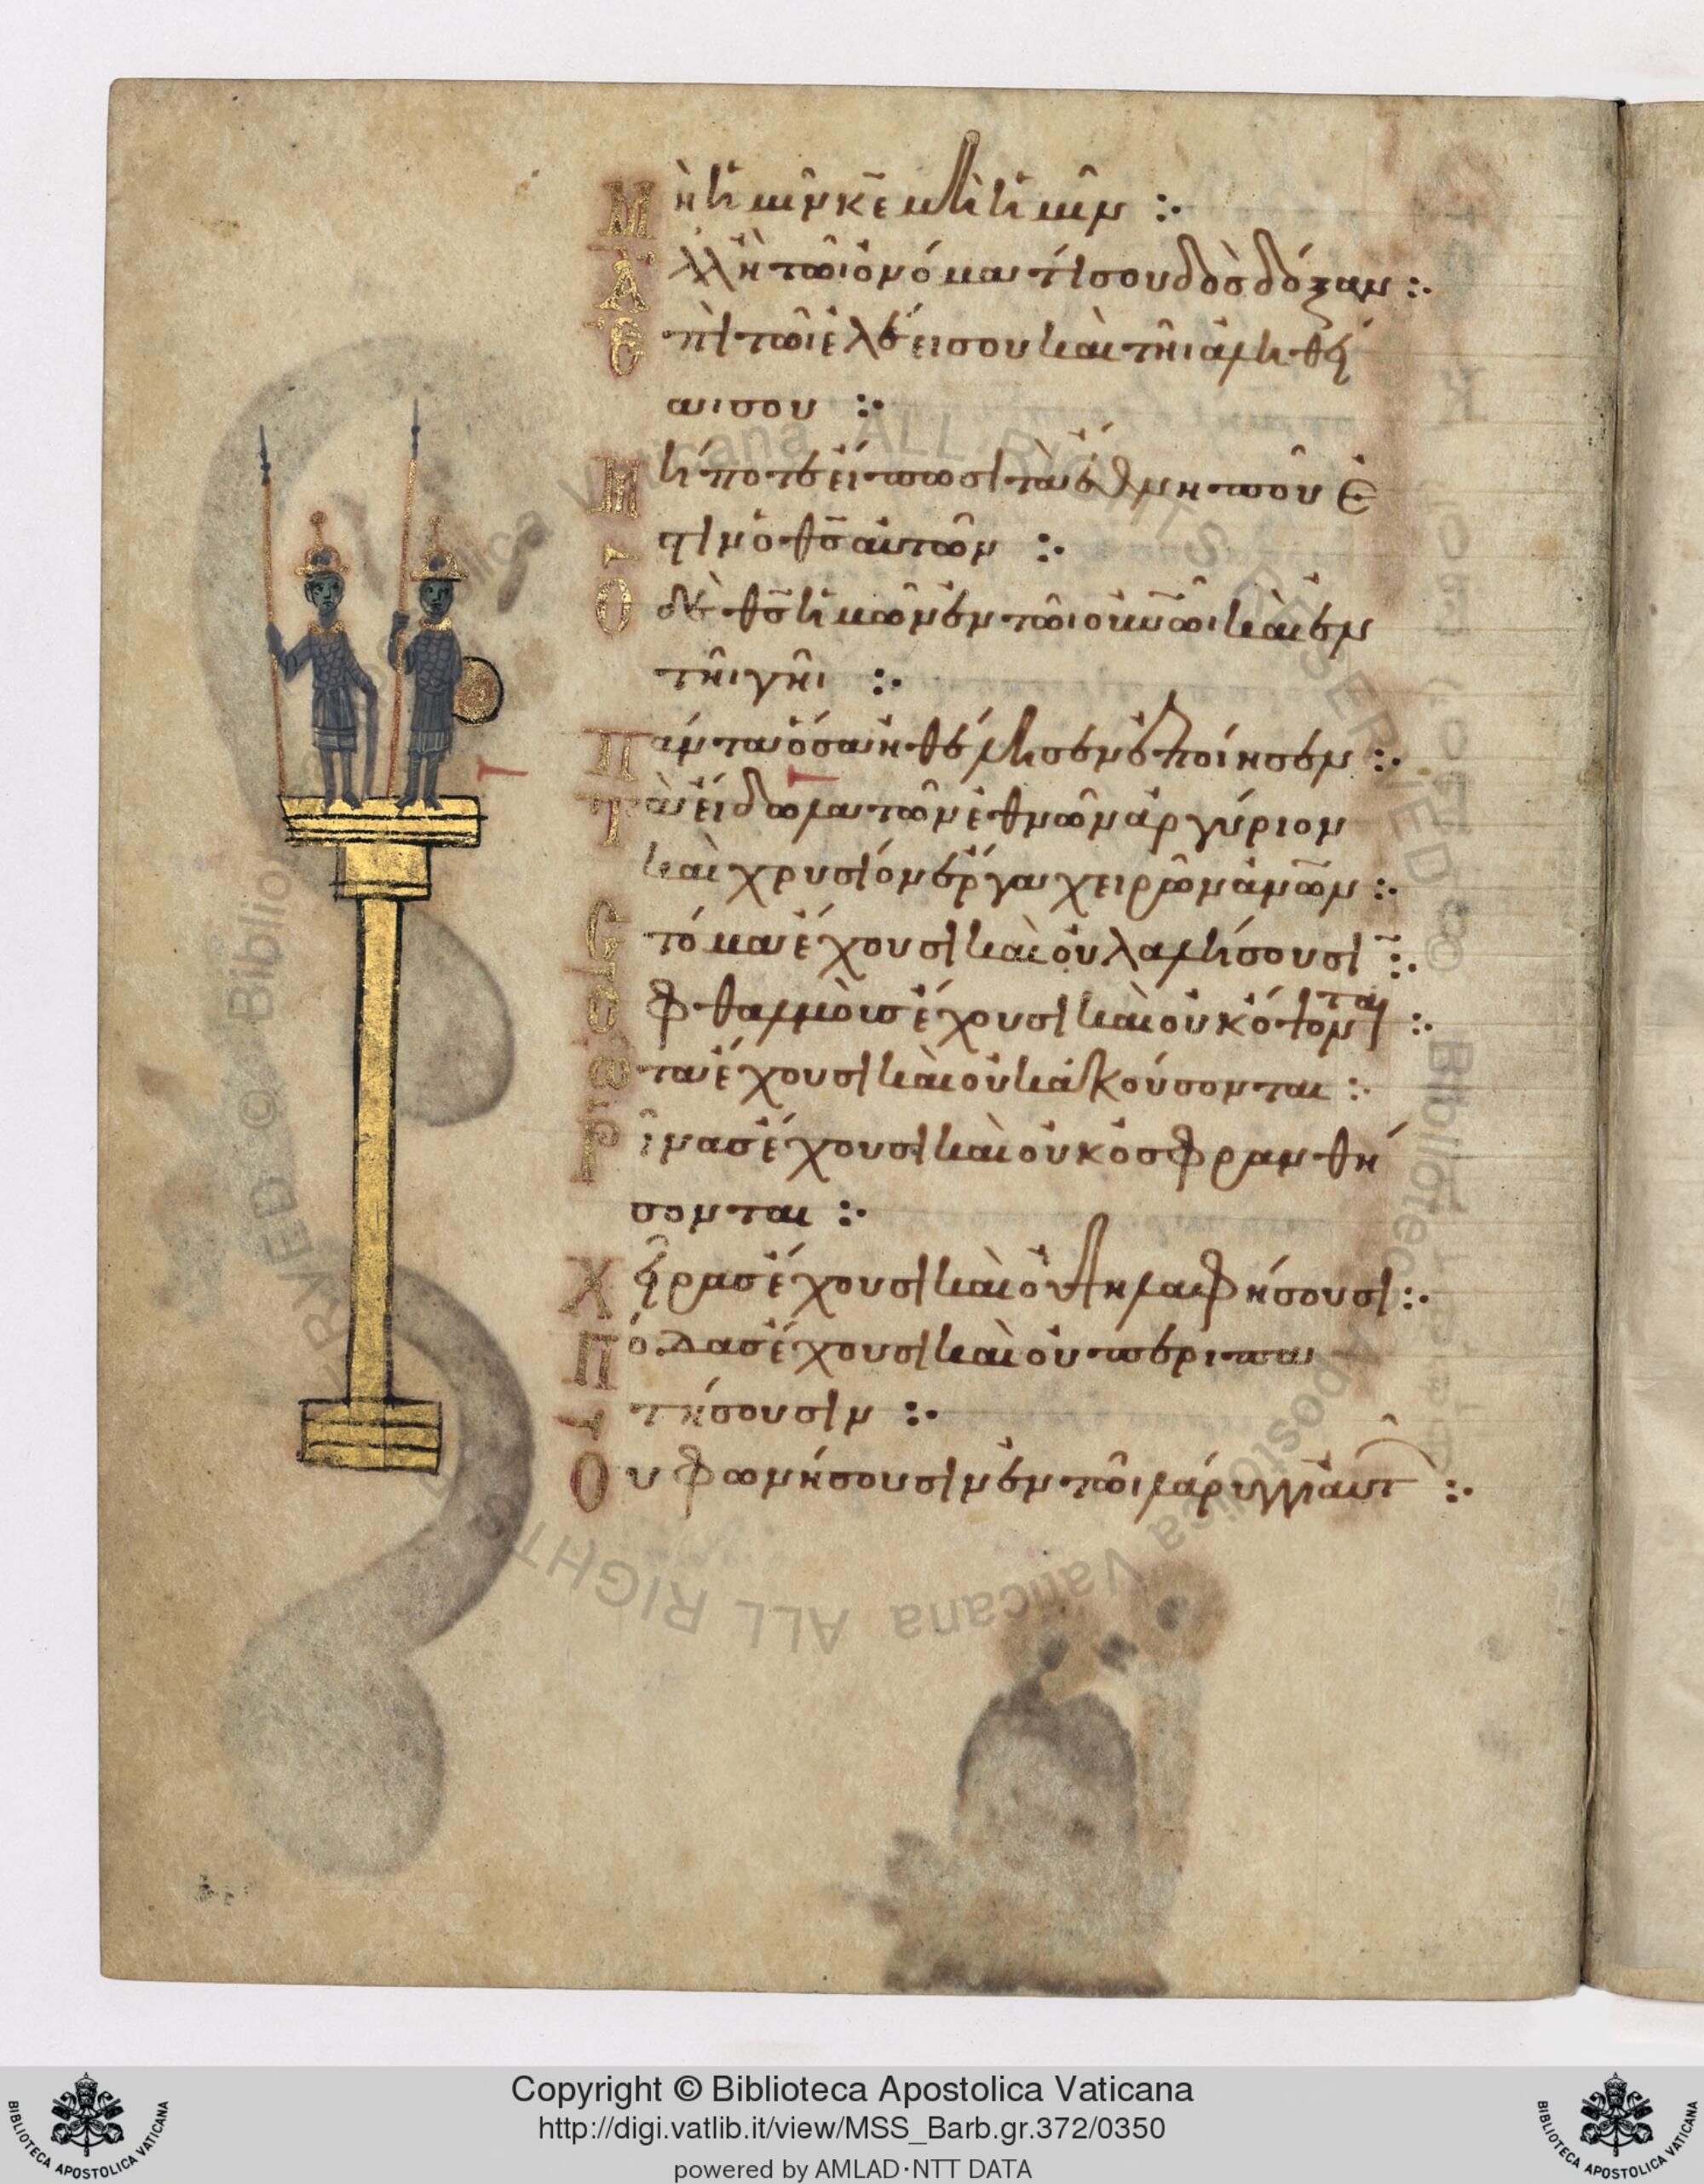 Μὴ ἡμῖν κ̅ε̅ μὴ ἡμῖν :·
Ἀλλ' ἢ τῶι ὀνόματί σου δὸς δόξαν :·
Ἐπὶ τῶι ἐλέει σου καὶ τῆι ἀληθεί
αι σου :·
Μή ποτε εἴπωσι τὰ ἔθνη ποῦ ἐ
στιν ὁ θ̅ς̅ αὐτῶν :·
Ὁ δὲ θ̅ς̅ ἡμῶν ἐν τῶι ου̅νω̅ι καὶ ἐν
τῆι γῆι :·
Πάντα ὅσα ἠθέλησεν ἐποίησεν :·
Τὰ εἴδωλα τῶν ἐθνῶν ἀργύριον
καὶ χρυσίον ἔργα χειρῶν ἀν̅ω̅ν :·
Στόμα ἔχουσι καὶ οὐ λαλήσουσι :·
Ὀφθαλμοὺς ἔχουσι καὶ οὐκ ὄψονται :·
Ὦτα ἔχουσι καὶ οὐκ ἀκούσονται :·
Ῥῖνας ἔχουσι καὶ οὐκ ὀσφρανθή
σονται :·
Χεῖρας ἔχουσι καὶ οὐ ψηλαφήσουσι :·
Πόδας ἔχουσι καὶ οὐ περιπα
τήσουσιν :·
Οὐ φωνήσουσιν ἐν τῶι λάρυγγι αὐτ :·
Copyright © Biblioteca Apostolica Vaticana
http://digi.vatlib.it/view/MSS_Barb.gr.372/0350
powered by AMLAD·NTT DATA
BIBLIOTECA APOSTOLICA VATICANA
BIBLIOTECA APOSTOLICA VATICANA